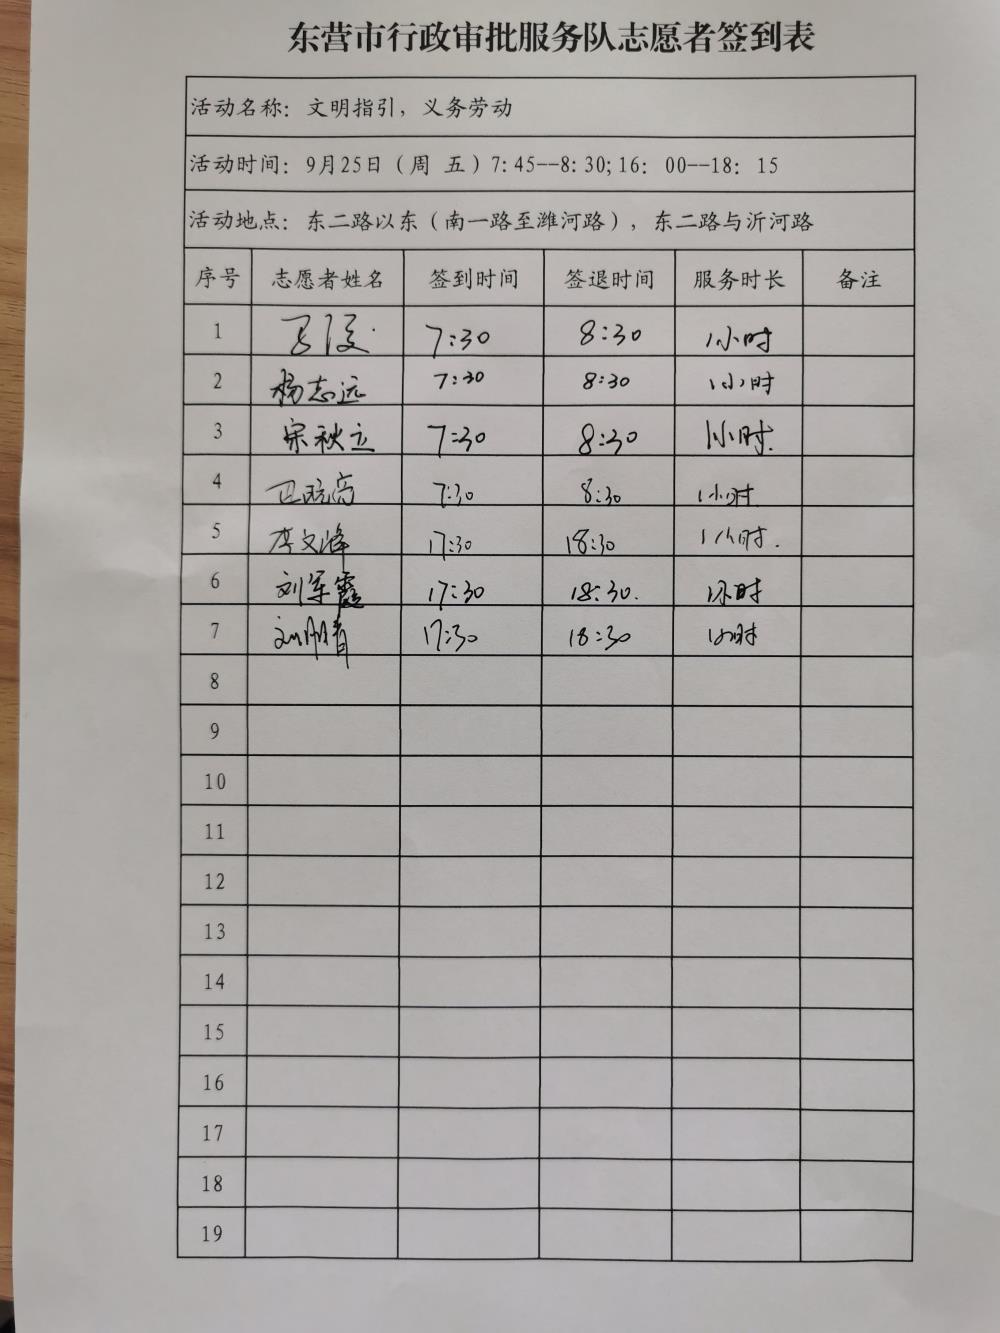 东营市行政审批服务队志愿者签到表
活动名称：文明指引，义务劳动
活动时间：9月25日（周 五）7:45--8:30;16: 00--18: 15
活动地点：东二路以东（南一路至潍河路），东二路与沂河路
序号 志愿者姓名 签到时间 签退时间 服务时长 备注
1 7:30 8:30 1小时
2 杨志远 7:30 8:30 1小时
3 宋秋立 7:30 8:30 1小时.
4 7:30 8:30 1小时.
5 李文峰 17:30 18:30 1小时.
6 刘军霞 17:30 18:30. 1小时
7 17:30 18:30 1小时
8
9
10
11
12
13
14
15
16
17
18
19